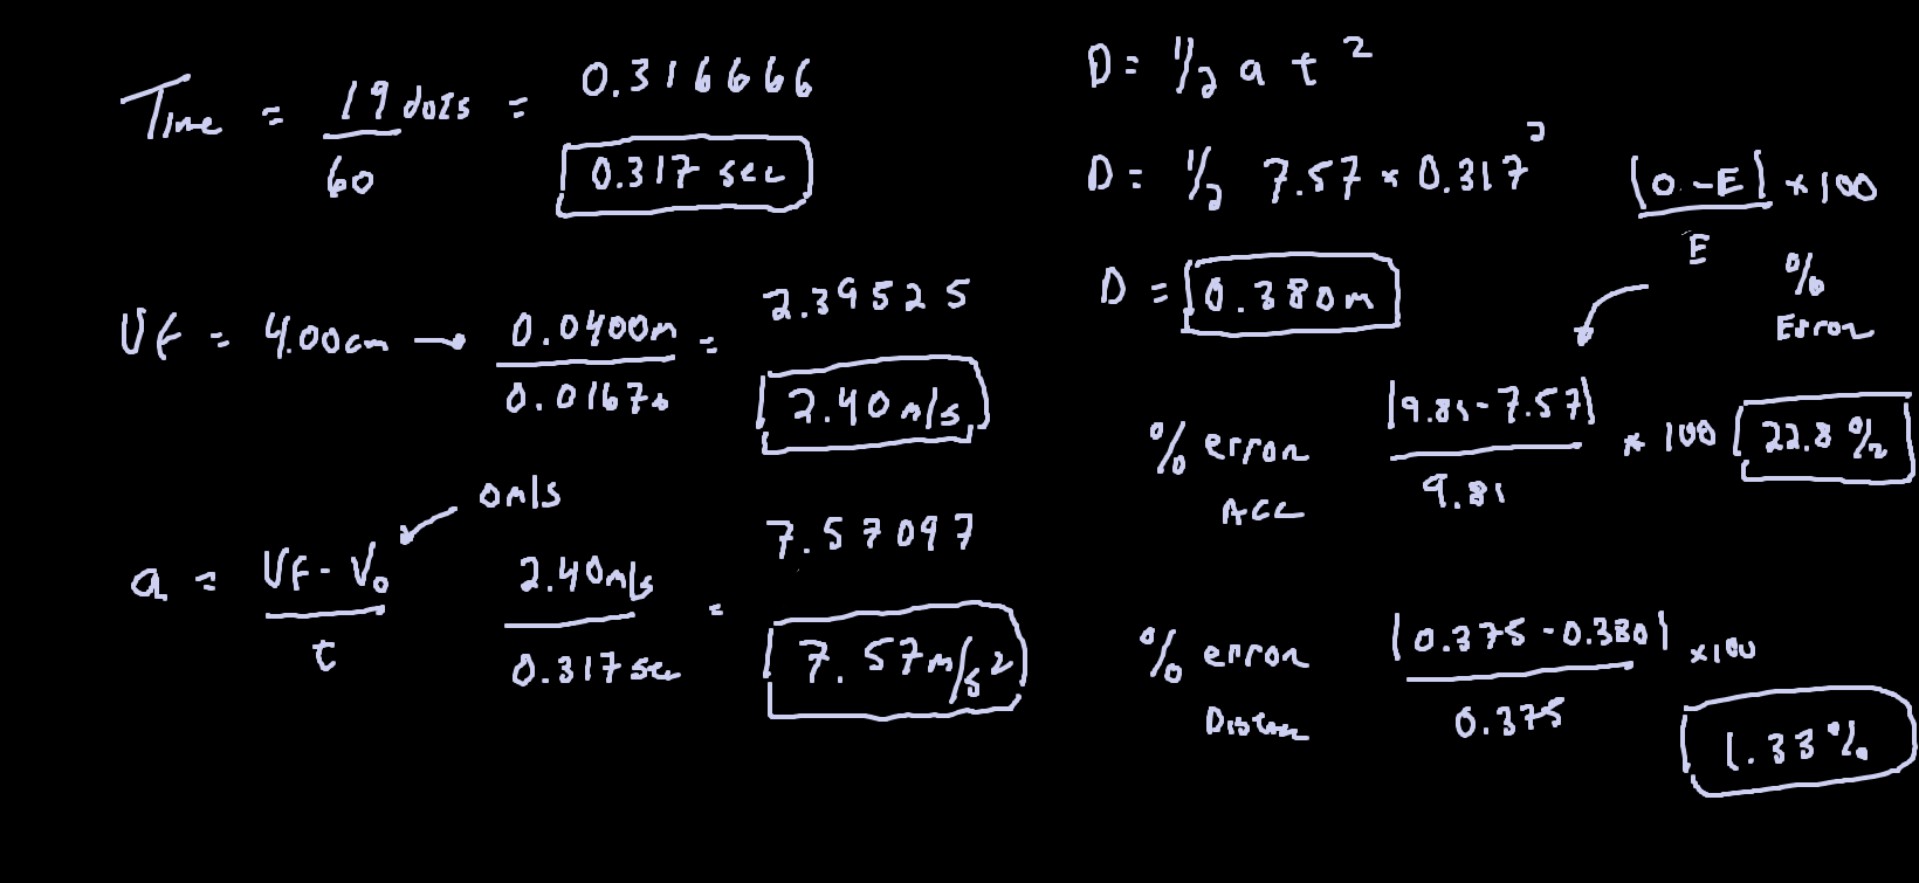 Time = 19 dots / 60 = 0.316666
0.317 sec
VF = 4.00cm → 0.0400m / 0.0167s = 2.39525
2.40 m/s
a = VF - V₀ / t
0 m/s
2.40m/s / 0.317 sec = 7.57097
7.57m/s²
D = 1/2 a t²
D = 1/2 7.57 × 0.317²
D = 0.380m
|O - E| / E × 100
% Error
% error Acc |9.81 - 7.57| / 9.81 × 100 22.8%
% error |0.375 - 0.380| / 0.375 × 100
1.33%